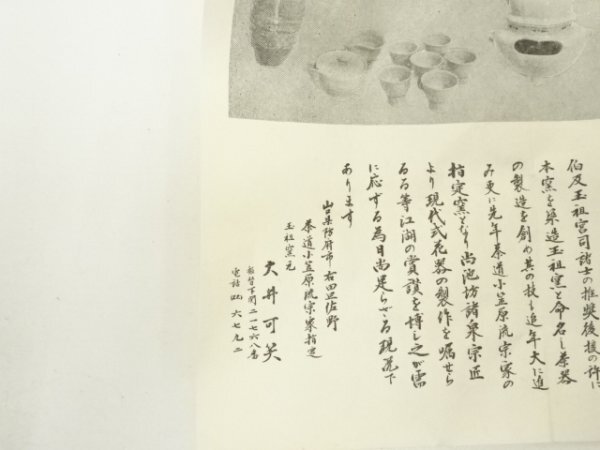 伯及玉祖宮司諸士の推奨後援の許に
本窯を築造玉祖窯と命名し茶器
の製造を創め其の技も近年大に進
み更に先年茶道小笠原流宗家の
指定窯となり尚池坊諸泉宗匠
より現代式花器の製作を嘱せら
るゝ等江湖の賞讃を博し之が需
に応ずる為日尚足らざる現況下
あります
山口県防府市右田玉佐野
茶道小笠原流宗家指定
玉祖窯元
大井可笑
振替下関二一七六八番
電話 六七九二